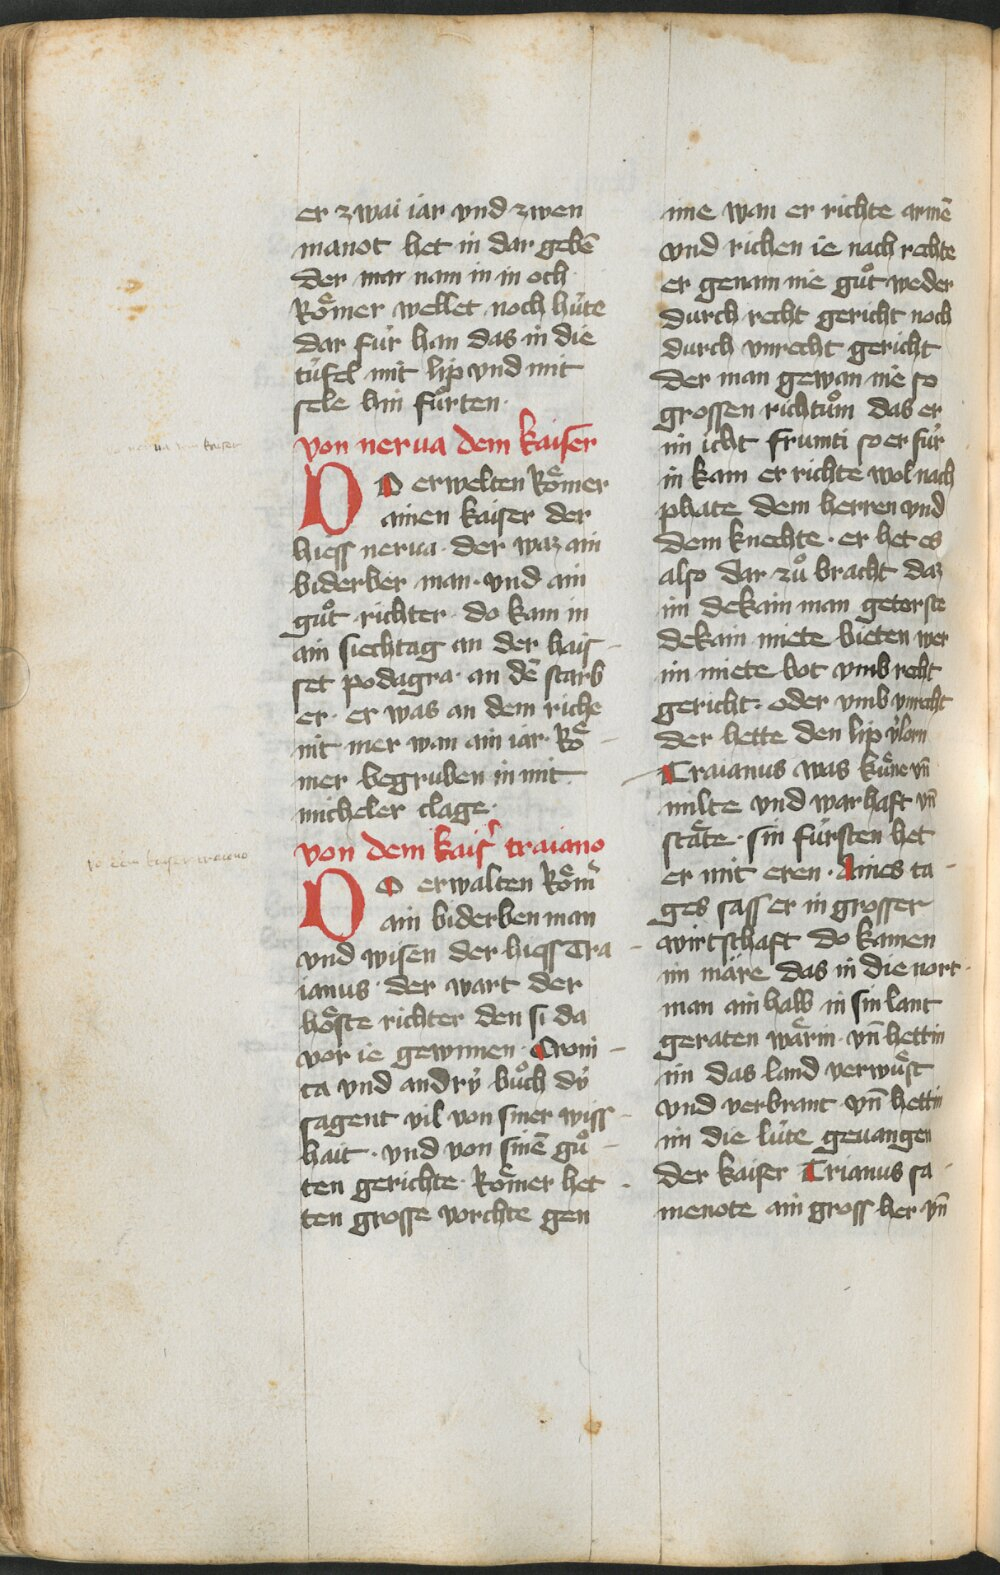 er zwai iar vnd zwen
manot het in dar gebē
der mer nam in in och
Roͤmer wellet noch huͤte
dar fuͤr han das in die
tuͤfel mit lip vnd mit
sele hin fuͤrten·
von nerua dem kaiser
DO erwelten Roͤmer
ainen kaiser der
hiess nerua· der waz ain
biderber man· vnd ain
guͦt richter· do kam in
ain siechtag an der hais-
set podagra· an dē starb
er· er was an dem riche
nit mer wan ain iar· Roͤ-
mer begruben in mit
micheler clage·
von dem kais' traiano
DO erwalten Roͤm'
ain biderben man
vnd wisen der hiess Tra-
ianus· der wart der
hoͤste richter den si da
vor ie gewunnen· Croni-
ca vnd andrÿ buͦch dÿ
sagent vil von siner wiss-
hait· vnd von sinē guͦ-
ten gerichte· Roͤmer het-
ten grosse vorchte gen
ime wan er richte armē
vnd richen ie nach rechte
er genam nie guͦt weder
durch recht gericht noch
durch vnrecht gericht
der man gewan nie so
grossen richtuͦm das er
im icht frumti so er fuͤr
in kam er richte wol nach
phate dem herren vnd
dem knechte· er het es
also dar zuͦ bracht daz
im dekain man getorste
dekain miete bieten wer
im miete bot vmb reht
gericht· oder vmb vnrecht
der hette den lip v'lorn
Traianus was kuͤne vn̄
milte vnd warhaft vn̄
staͤte· sin fuͤrsten het
er mit eren· Aines ta-
ges sass er in grosser
wirtschaft do kamen
im maͤre das in die nort-
man ain halb in sin lant
geraten waͤrin· vn̄ hettin
im das land verwuͤst
vnd verbrant vn̄ hettin
im die luͤte geuangen
der kaiser Trianus sa-
menote ain gross her vn̄